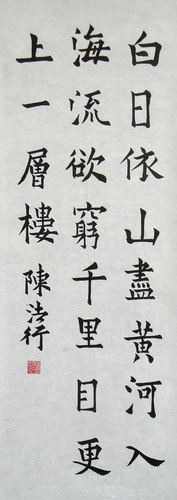 白日依山盡黃河入
海流欲窮千里目更
上一層樓
陳法行